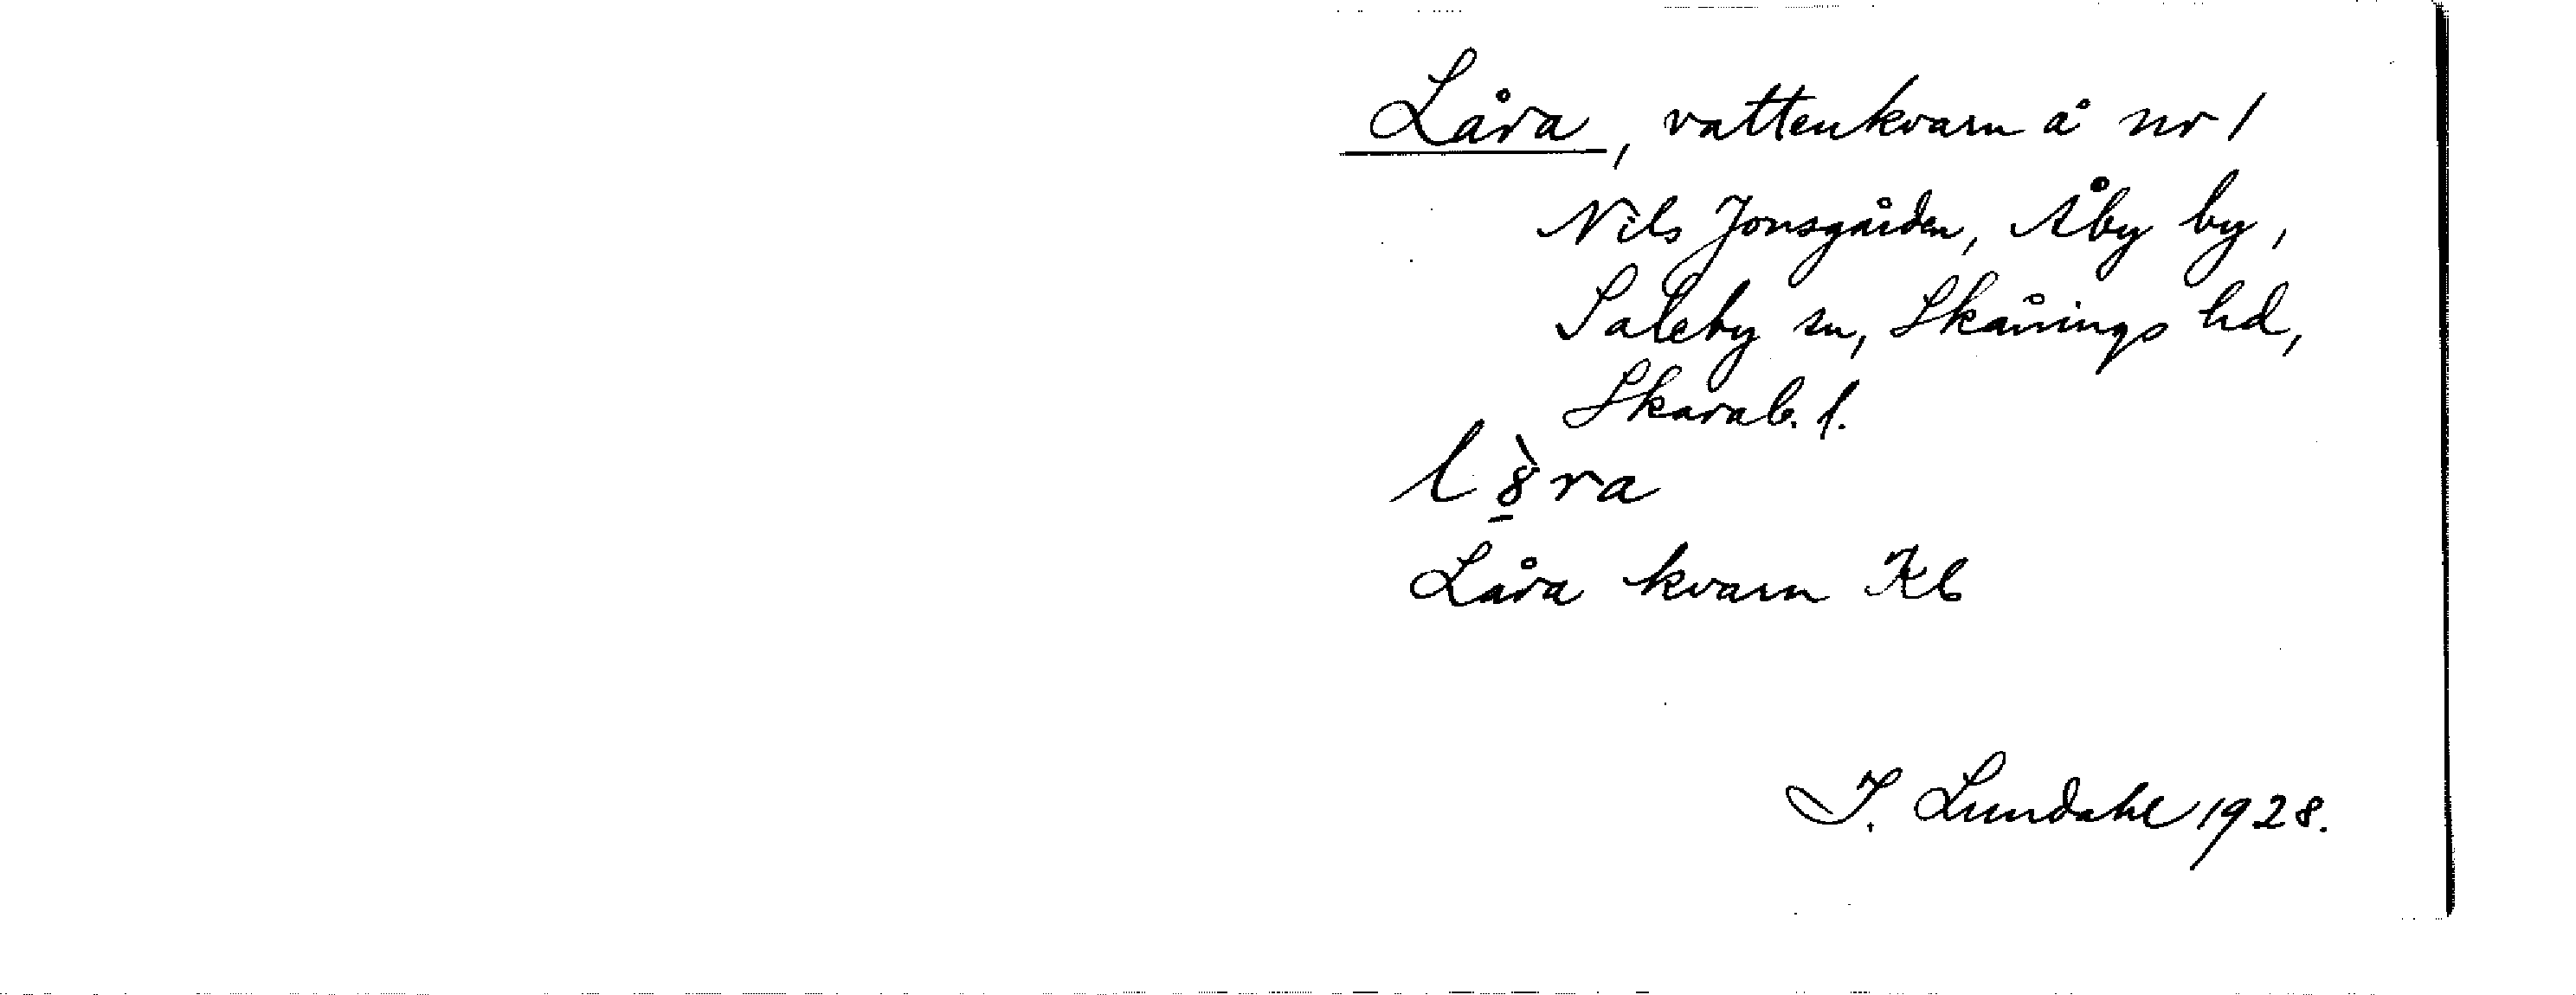 Låra, vattenkvarn å nr 1
Nils Jonsgården, Åby by,
Saleby sn, Skånings hd,
Skarab. l.
l8̱̀ra
Låra kvarn Kb
I. Lundahl 1928.